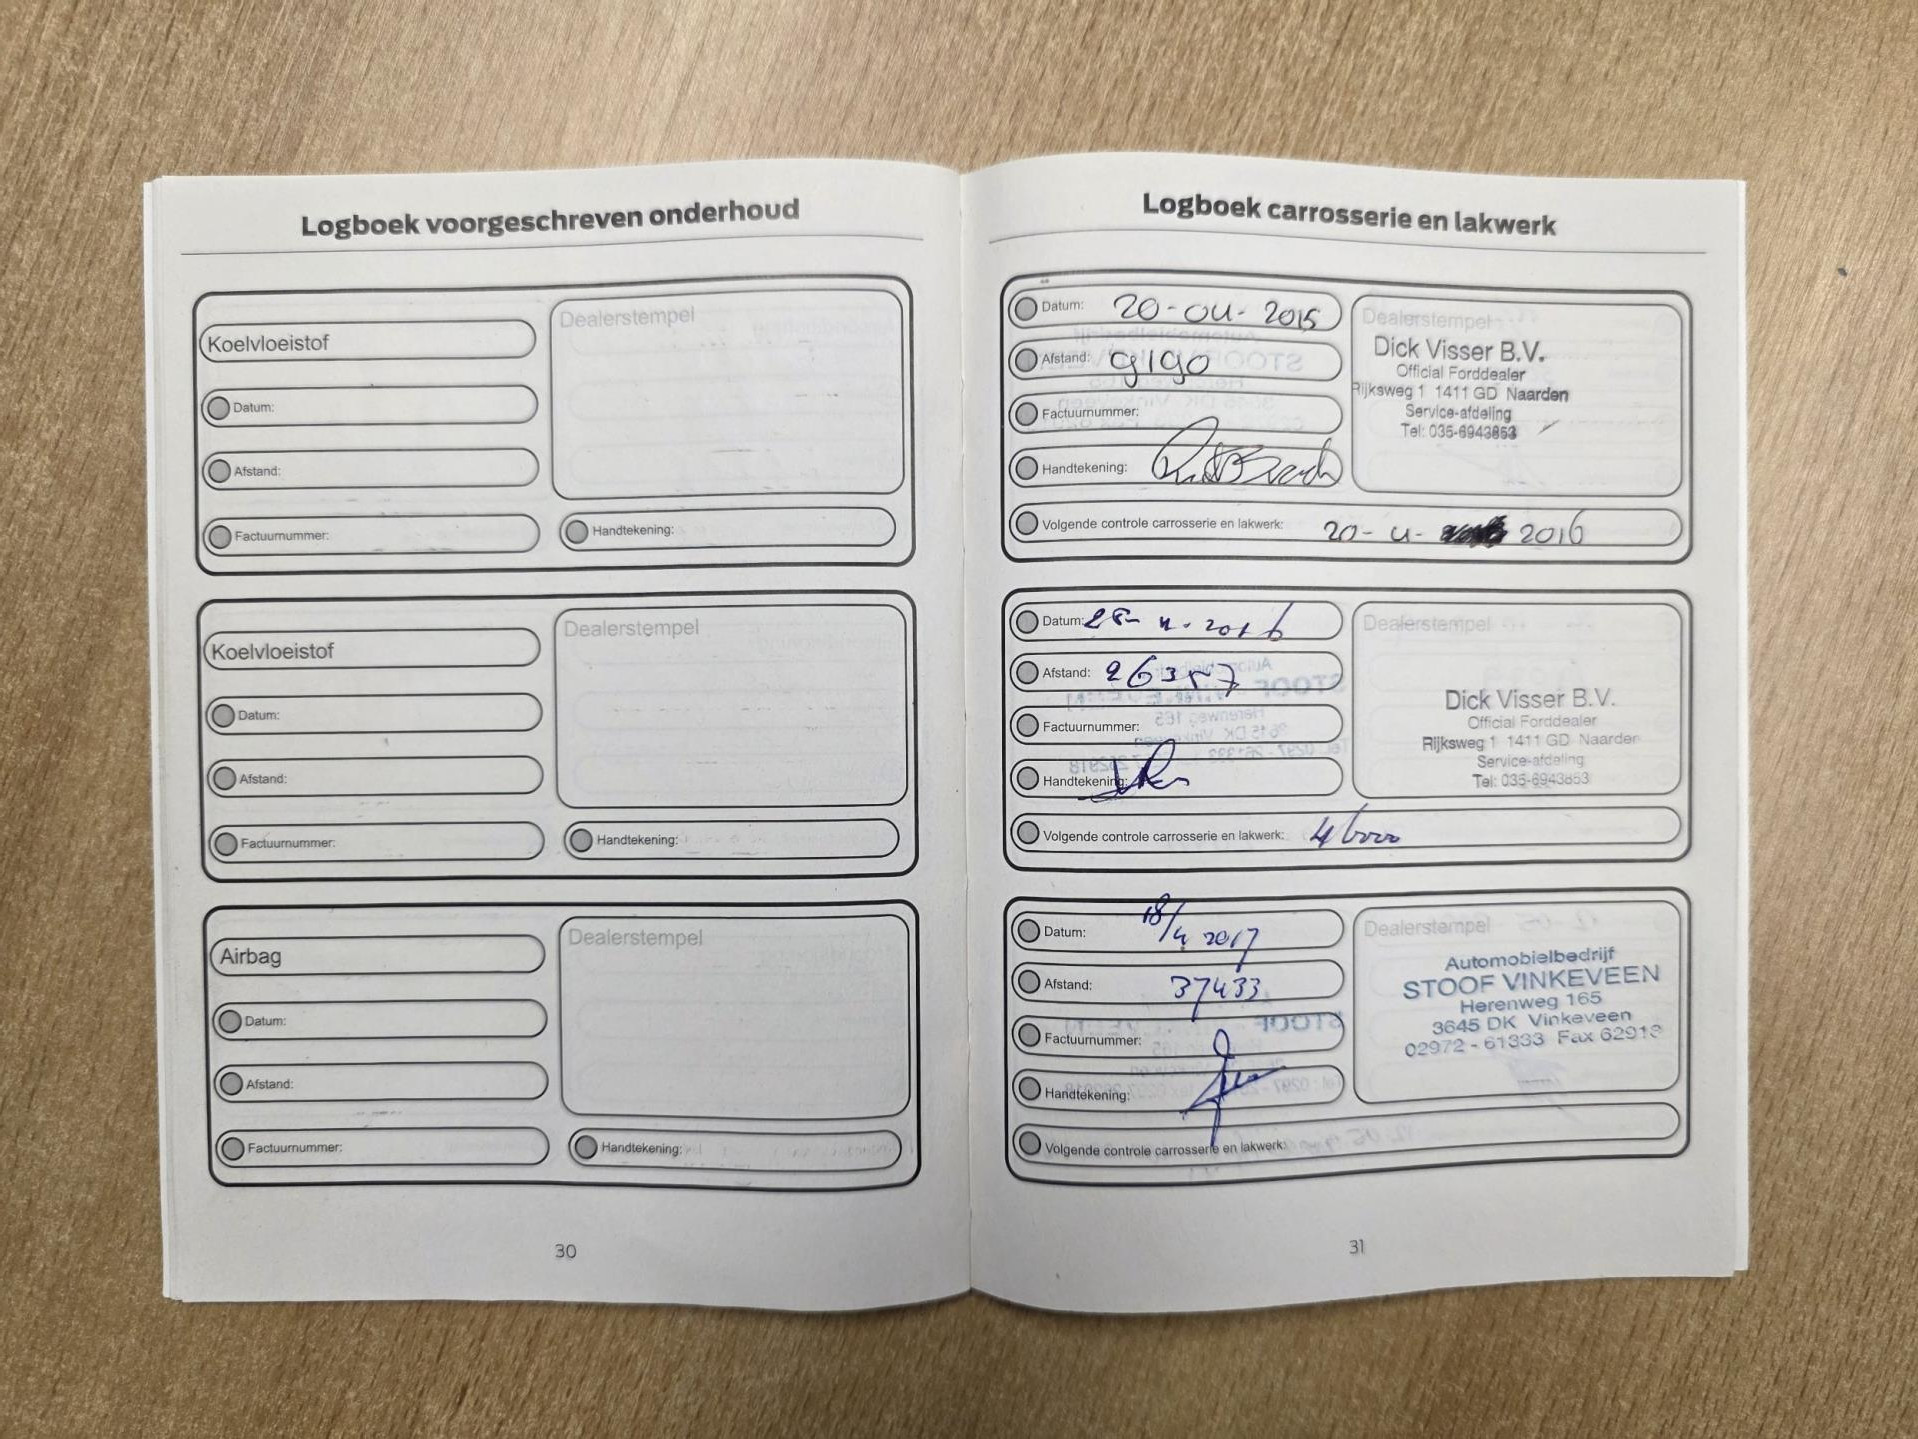 Logboek voorgeschreven onderhoud
Koelvloeistof
Dealerstempel
Datum:
Afstand:
Factuurnummer:
Handtekening:
Koelvloeistof
Dealerstempel
Datum:
Afstand:
Factuurnummer:
Handtekening:
Airbag
Dealerstempel
Datum:
Afstand:
Factuurnummer:
Handtekening:
30
Logboek carrosserie en lakwerk
Datum: 20-04-2015
Afstand: 9190
Factuurnummer:
Handtekening:
Dealerstempel
Dick Visser B.V.
Official Forddealer
Rijksweg 1 1411 GD Naarden
Service-afdeling
Tel: 035-6943853
Volgende controle carrosserie en lakwerk: 20-4- 2016
Datum: 25-4-2016
Afstand: 26357
Factuurnummer:
Handtekening:
Dealerstempel
Dick Visser B.V.
Official Forddealer
Rijksweg 1 1411 GD Naarden
Service-afdeling
Tel: 035-6943853
Volgende controle carrosserie en lakwerk:
Datum: 18/4 2017
Afstand: 37433
Factuurnummer:
Handtekening:
Dealerstempel
Automobielbedrijf
STOOF VINKEVEEN
Herenweg 165
3645 DK Vinkeveen
02972-61333 Fax 62918
Volgende controle carrosserie en lakwerk:
31